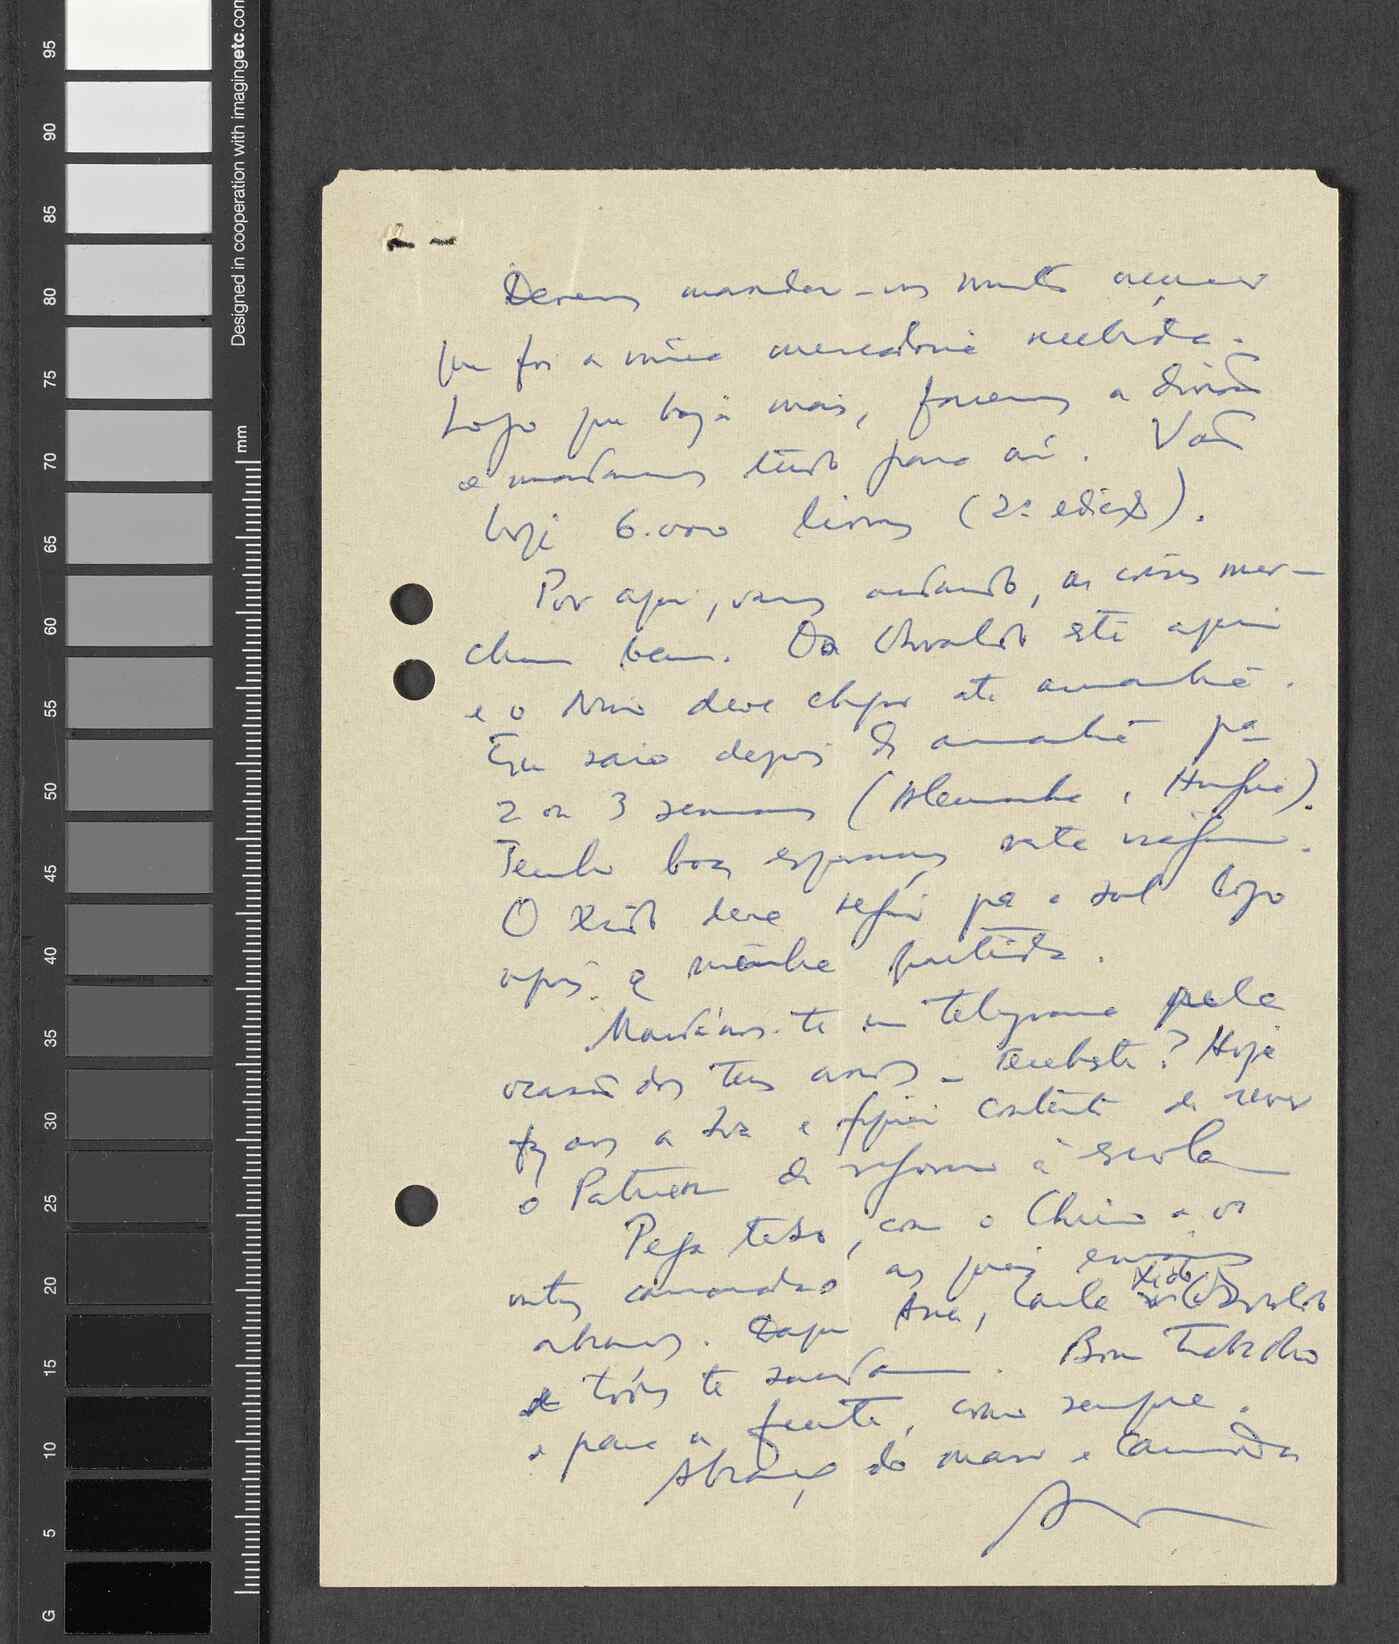 95
90
85
80
75
70
65
60
55
50
45
40
35
30
25
20
15
10
5
G
Designed in cooperation with imagingetc.com
mm
mandar-vos muito
foi a única mercadoria recebida.
Logo que haja mais, faremos a divisão
e mandamos tudo para aí. Vão
hoje 6.000 livros (2ª edição).
Por aqui, vamos andando, as coisas mar-
cham bem. Osvaldo está aqui
e o Nino deve chegar até amanhã.
Eu saio depois de amanhã pa
2 ou 3 semanas (Alemanha e Hungria).
Tenho boas esperanças nesta viagem.
O Xido deve seguir pa o sul logo
após a minha partida.
Mandámos-te um telegrama pela
ocasião dos teus anos – recebeste? Hoje
faz anos a Iva e fiquei contente de rever
o de regresso à escola
Pega teso, com o Chico e os
outros camaradas aos quais enviamos
abraços. Daqui Ana, Xido
Osvaldo
e todos te saudam. Bom trabalho
e para a frente, como sempre.
Abraço do mano e camarada